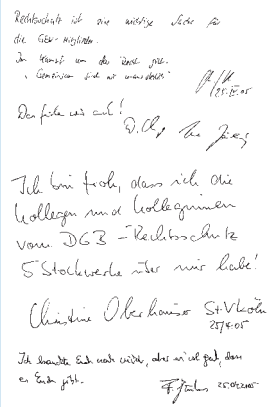 Rechtsschutz ist eine wichtige Sache für
die GEW-Mitglieder.
Im Kampf um das Recht gilt:
"Gemeinsam sind wir unausstehlich"
25.IV.05
Das finden wir auch!
Ich bin froh, dass ich die
Kollegen und Kolleginnen
vom DGB-Rechtsschutz
5 Stockwerke über mir habe!
Christine Oberhäuser St. V Köln
25/4.05
Ich brauchte Euch noch nicht, aber es ist gut, dass
es Euch gibt.
25.04.2005